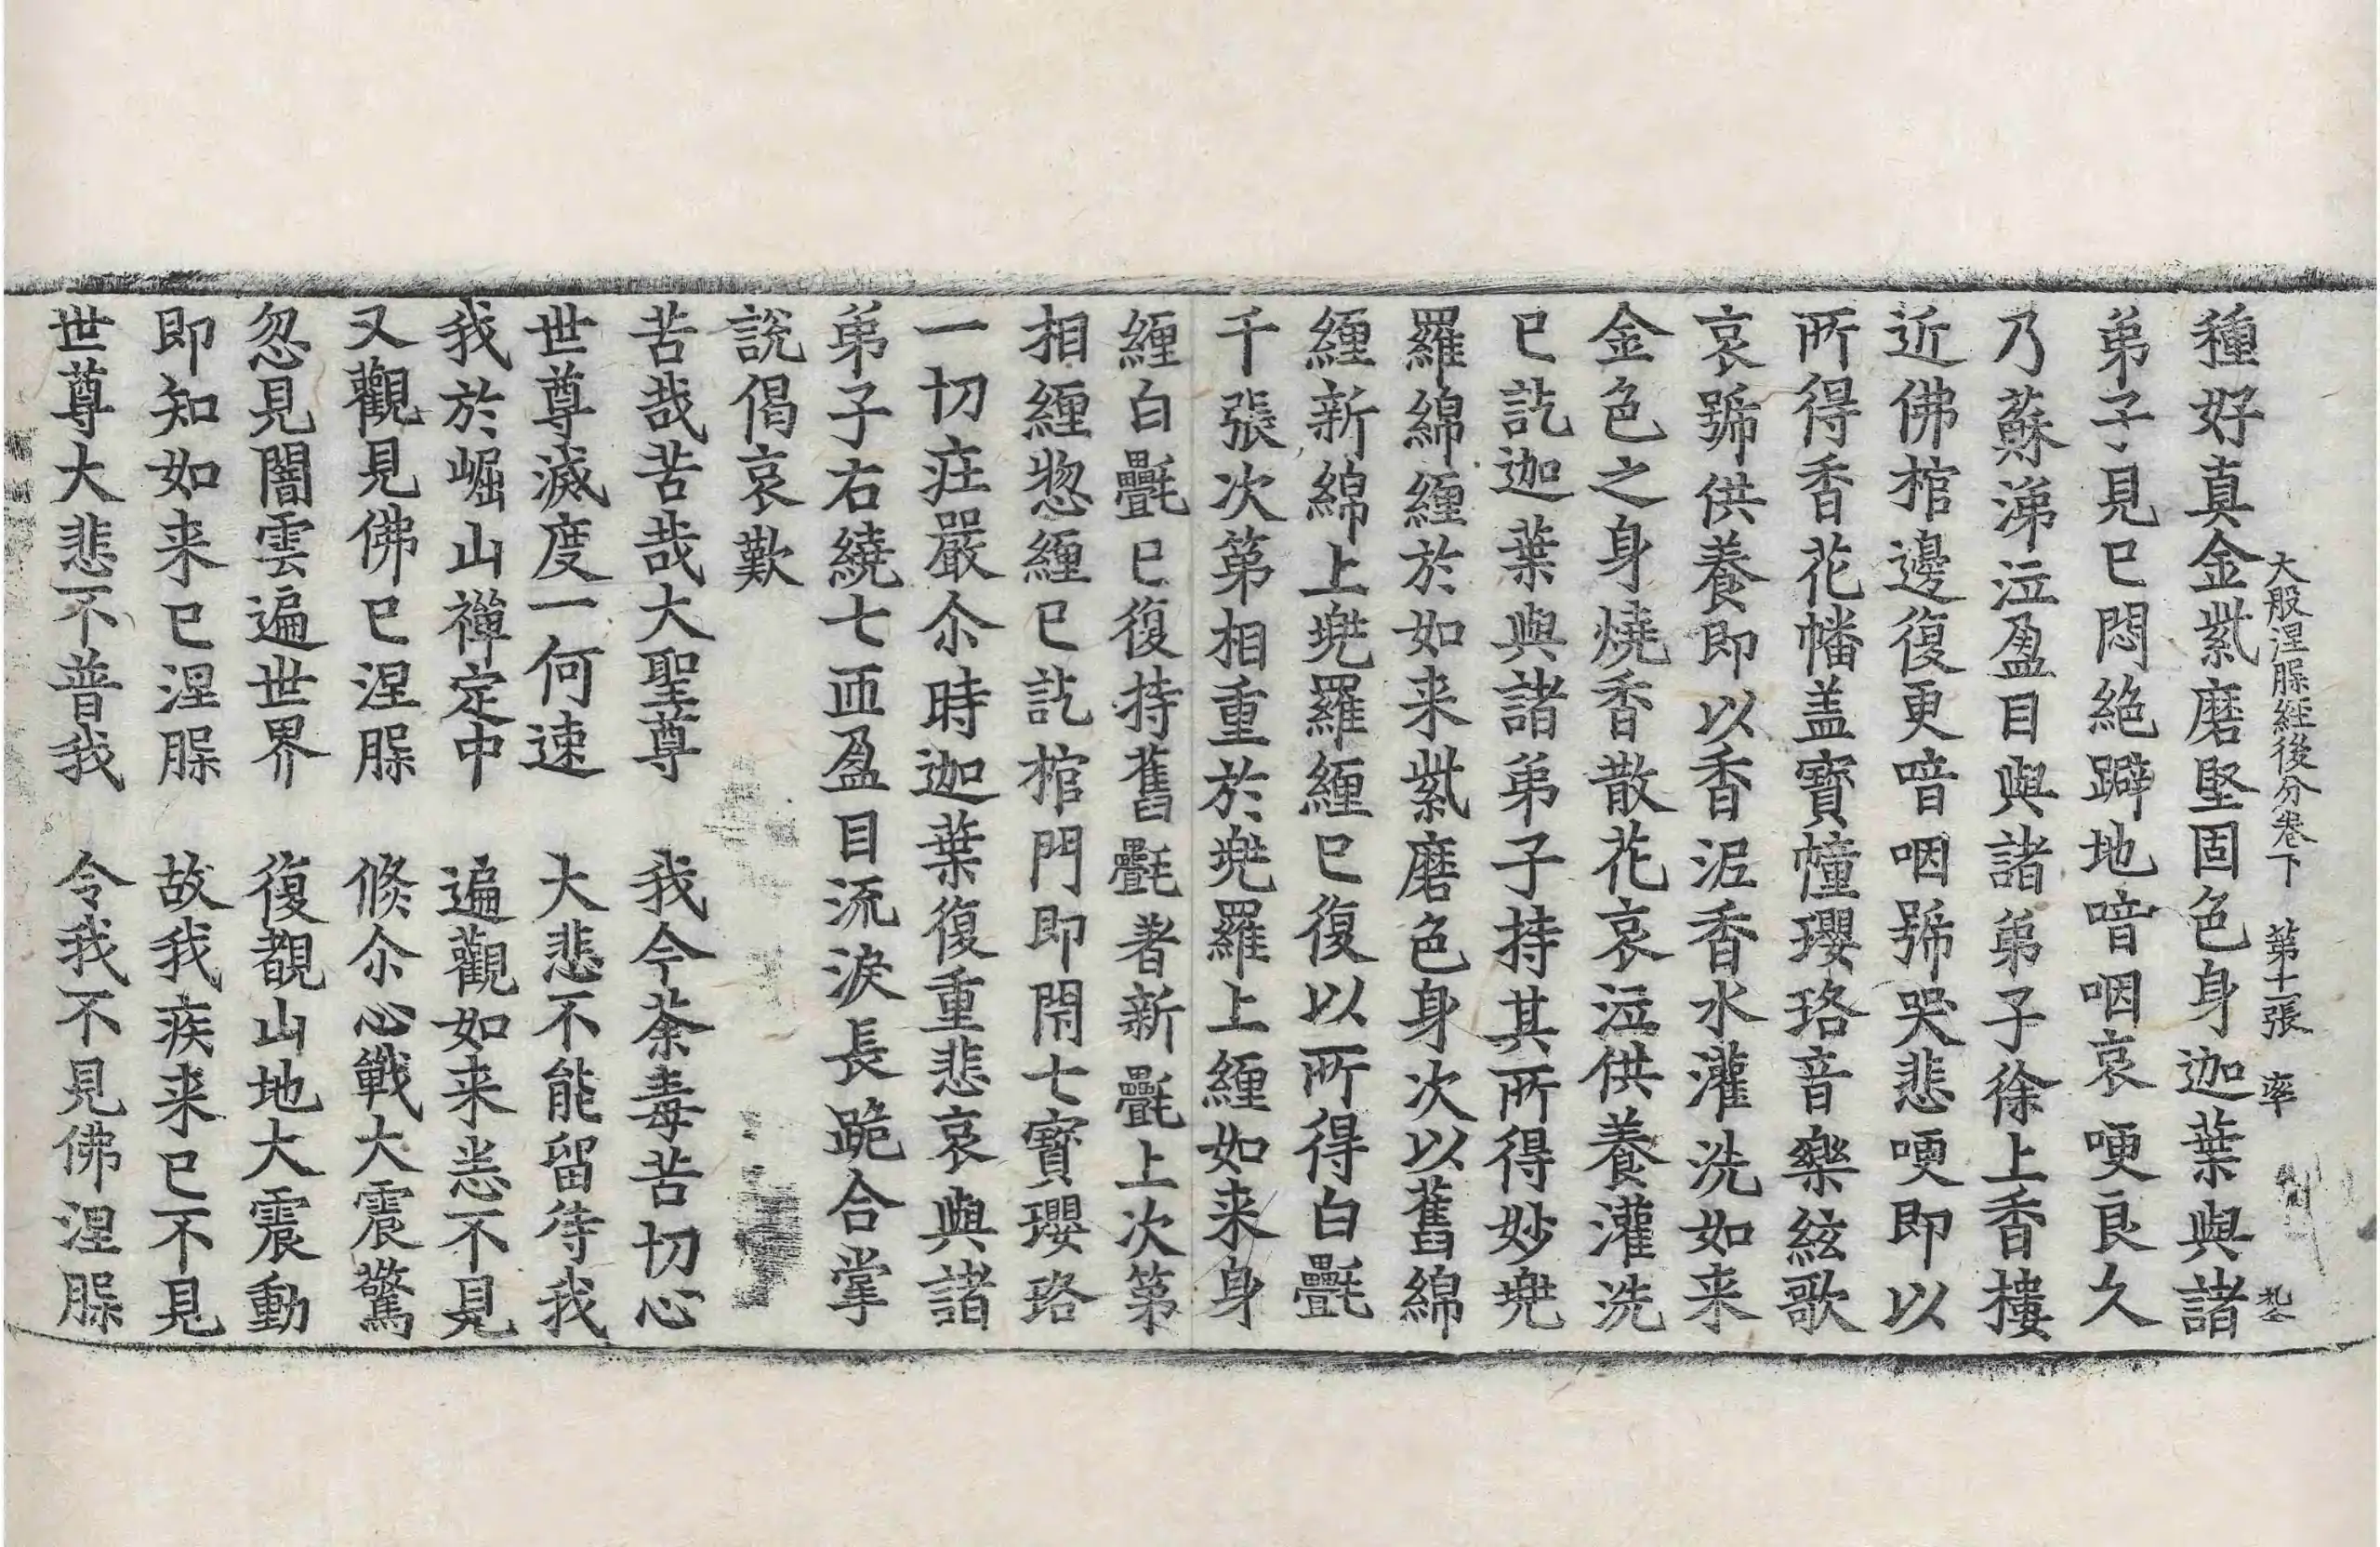 大般涅槃經後分卷下　第十張　率
種好真金紫磨堅固色身迦葉與諸
弟子見已悶絶躃地喑咽哀哽良久
乃蘇涕泣盈目與諸弟子徐上香樓
近佛棺邊復更喑咽號哭悲哽即以
所得香花幡盖寶幢瓔珞音樂絃歌
哀號供養即以香泥香水灌洗如来
金色之身燒香散花哀泣供養灌洗
已訖迦葉與諸弟子持其所得妙兠
羅綿纏於如来紫磨色身次以舊綿
纏新綿上兠羅纏已復以所得白㲲
千張次第相重於兠羅上纏如来身
纏白㲲已復持舊㲲著新㲲上次第
相纏惣纏已訖棺門即閇七寶瓔珞
一切疘嚴尒時迦葉復重悲哀與諸
弟子右繞七帀盈目流淚長跪合掌
說偈哀歎
苦哉苦哉大聖尊　我今荼毒苦切心
世尊滅度一何速　大悲不能留待我
我於崛山禪定中　遍觀如来悉不見
又觀見佛已涅槃　倏尒心戰大震驚
忽見闇雲遍世界　復覩山地大震動
即知如来已涅槃　故我疾来已不見
世尊大悲不普我　令我不見佛涅槃